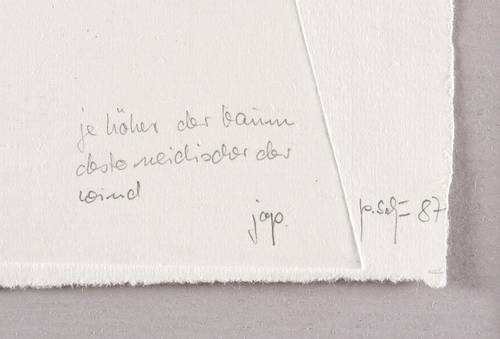 je höher der baum
desto neidischer der
wind
jap.
87